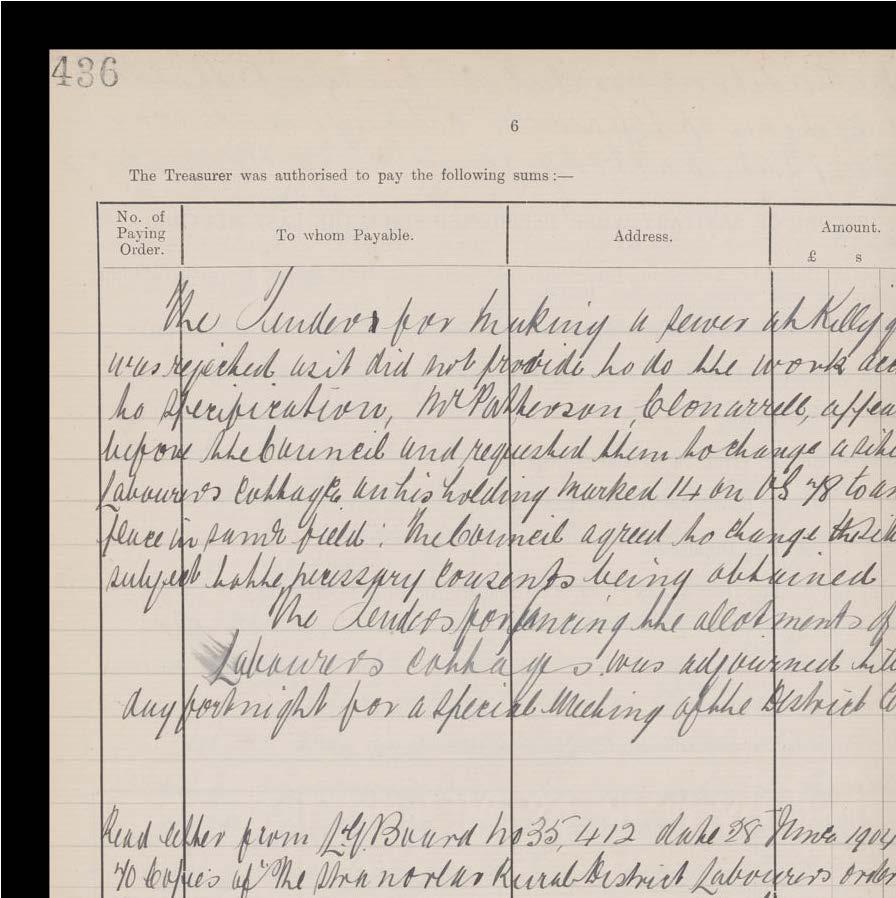 436
6
The Treasurer was authorised to pay the following sums :—
No. of Paying Order.
To whom Payable.
Address.
Amount.
£ s
The Tenders for making a sewer at Killyg
was rejected as it did not provide to do the work acc
to specification, Mr Patterson, appea
before the Council and requested them to change a site
Labourers Cottage on his holding marked 14 on OS 78 to an
place in same field : The Council agreed to change the sit
subject to the necessary consents being obtained
The Tenders for fencing the allotments of
Labourers cottages was adjourned till
day fortnight for a special Meeting of the District C
Read letter from LG Board No 35,412 date 28 June 1904
70 Copies of The Stranorlar Rural District Labourers order